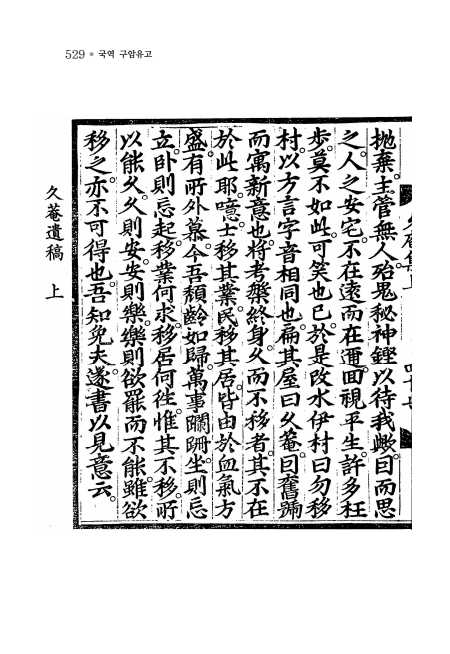 529 국역 구암유고
拋棄主管無人殆鬼秘神鏗以待我歟曰而思
之人之安宅不在遠而在邇回視平生許多枉
步莫不如此可笑也已於是改水伊村曰勿移
村以方言字音相同也扁其屋曰久菴曰舊踊
而寓新意也將考槃終身久而不移者其不在
於此耶噫士移其業民移其居皆由於血氣方
盛有所外慕今吾頹齡如歸萬事闌珊坐則忘
立臥則忘起移業何求移居何徃惟其不移所
以能久久則安安則樂樂則欲罷而不能雖欲
移之亦不可得也吾知免夫遂書以見意云
久菴遺稿 上